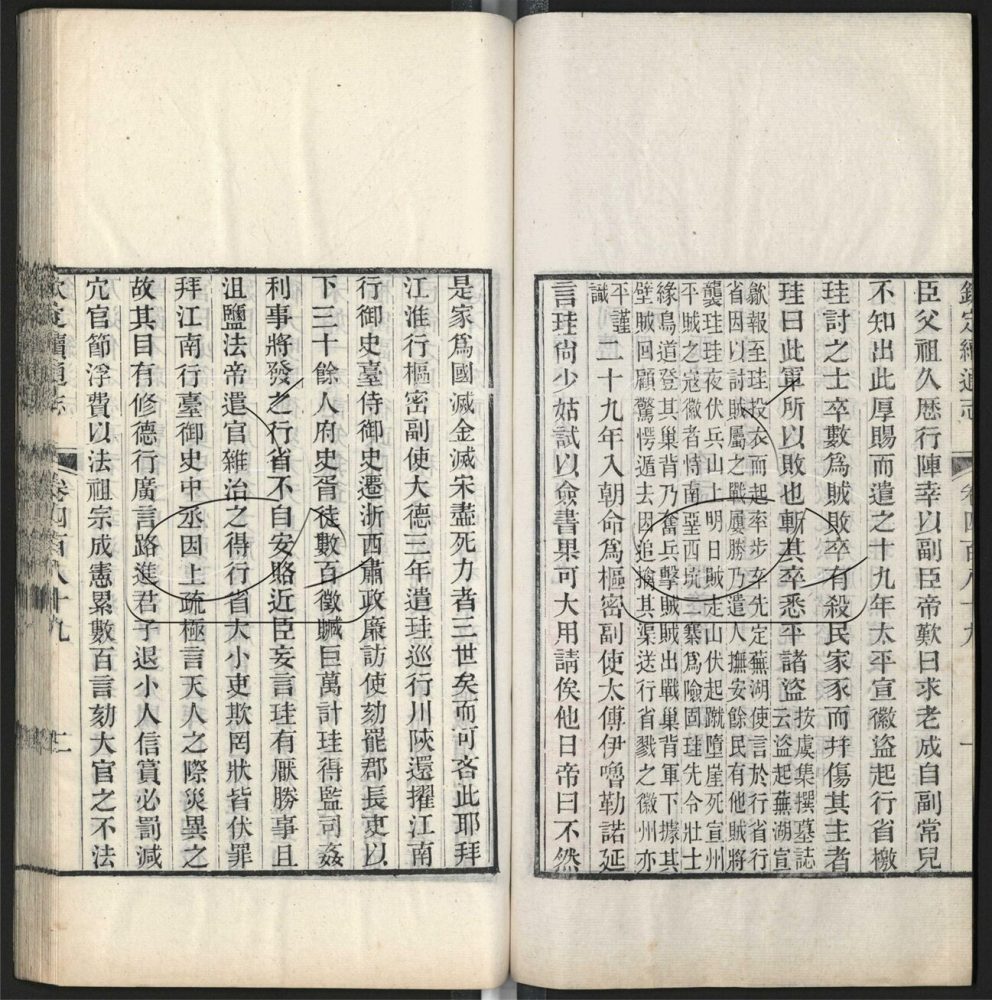 欽定續通志 卷四百八十九 一
臣父祖久歴行陣幸以副臣帝歎曰求老成自副常兒
不知出此厚賜而遣之十九年太平宣徽盜起行省檄
珪討之士卒數爲賊敗卒有殺民家豕而幷傷其主者
珪曰此軍所以敗也斬其卒悉平諸盜
按虞集撰墓誌
云盜起蕪湖宣
歙報至珪投衣而起率步卒先定蕪湖使言於行省行
省因以討賊屬之戰屢勝乃遣人撫安餘民有他賊將
襲珪珪夜伏兵山上明日賊走山伏起蹴墮崖死宣州
平賊之寇徽者恃南堊西坑三寨爲險固珪先令壯士
緣鳥道登其巢背乃奮兵擊賊賊出戰巢背軍下據其
壁賊回顧驚愕遁去因追擒其渠送行省戮之徽州亦
平謹
識
二十九年入朝命爲樞密副使太傅伊嚕勒諾延
言珪尙少姑試以僉書果可大用請俟他日帝曰不然
是家爲國滅金滅宋盡死力者三世矣而可吝此耶拜
江淮行樞密副使大德三年遣珪巡行川陜還擢江南
行御史臺侍御史遷浙西肅政廉訪使劾罷郡長吏以
下三十餘人府史胥徒數百徵贓巨萬計珪得監司姦
利事將發之行省不自安賂近臣妄言珪有厭勝事且
沮鹽法帝遣官雜治之得行省大小吏欺罔狀皆伏罪
拜江南行臺御史中丞因上疏極言天人之際災異之
故其目有修德行廣言路進君子退小人信賞必罰減
宂官節浮費以法祖宗成憲累數百言劾大官之不法
欽定續通志 卷四百八十九 二